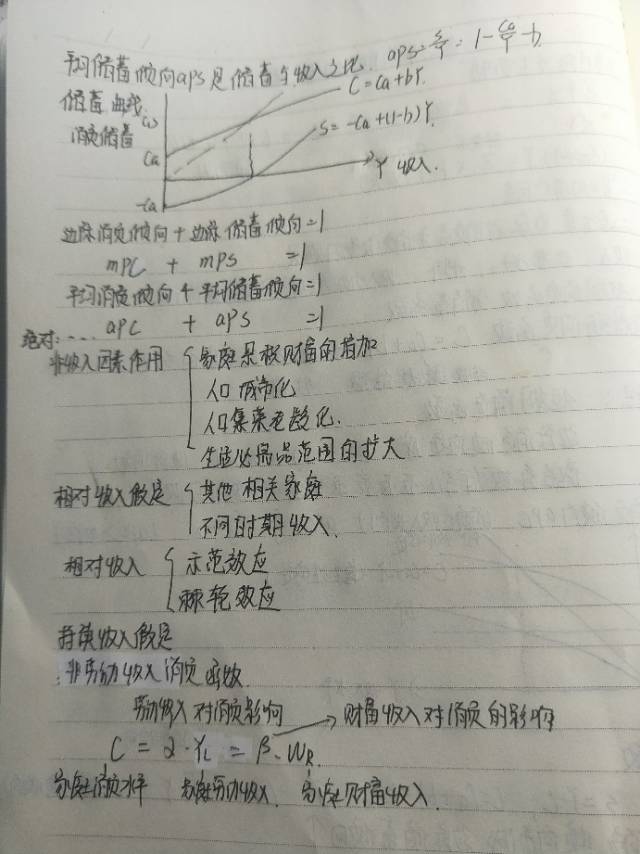 平均储蓄倾向aps是储蓄与收入之比. aps=S/Y=1-Ca/Y-b.
储蓄曲线
消费储蓄
C=Ca+bY.
Ca
S=-Ca+(1-b)Y.
Y 收入.
-Ca
边际消费倾向+边际储蓄倾向=1
mpc + mps =1
平均消费倾向+平均储蓄倾向=1
绝对:.... apc + aps =1
非收入因素作用
家庭累积财富的增加
人口城市化
人口集 老龄化.
生活必需品范围的扩大
相对收入假定
其他相关家庭
不同时期收入.
相对收入
示范效应
棘轮效应
持续收入假定
非劳动收入消费函数
劳动收入对消费影响 → 财富收入对消费的影响
C = α·YL = β·WR.
家庭消费水平 家庭劳动收入. 家庭财富收入.